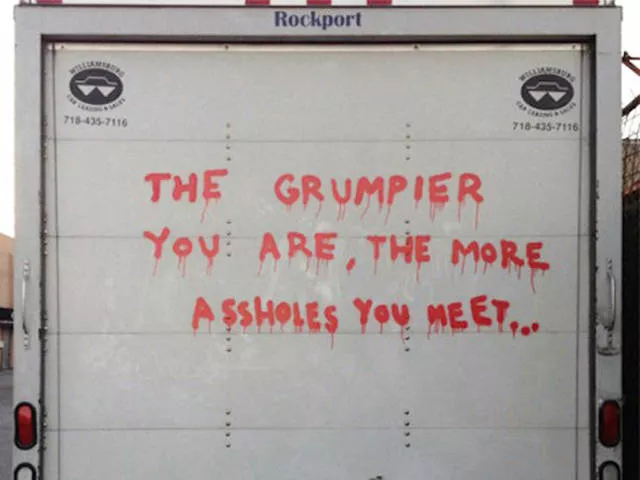 Rockport
WILLIAMSBURG
CAR LEASING & SALES
718-435-7116
WILLIAMSBURG
CAR LEASING & SALES
718-435-7116
THE GRUMPIER
YOU ARE, THE MORE
ASSHOLES YOU MEET...